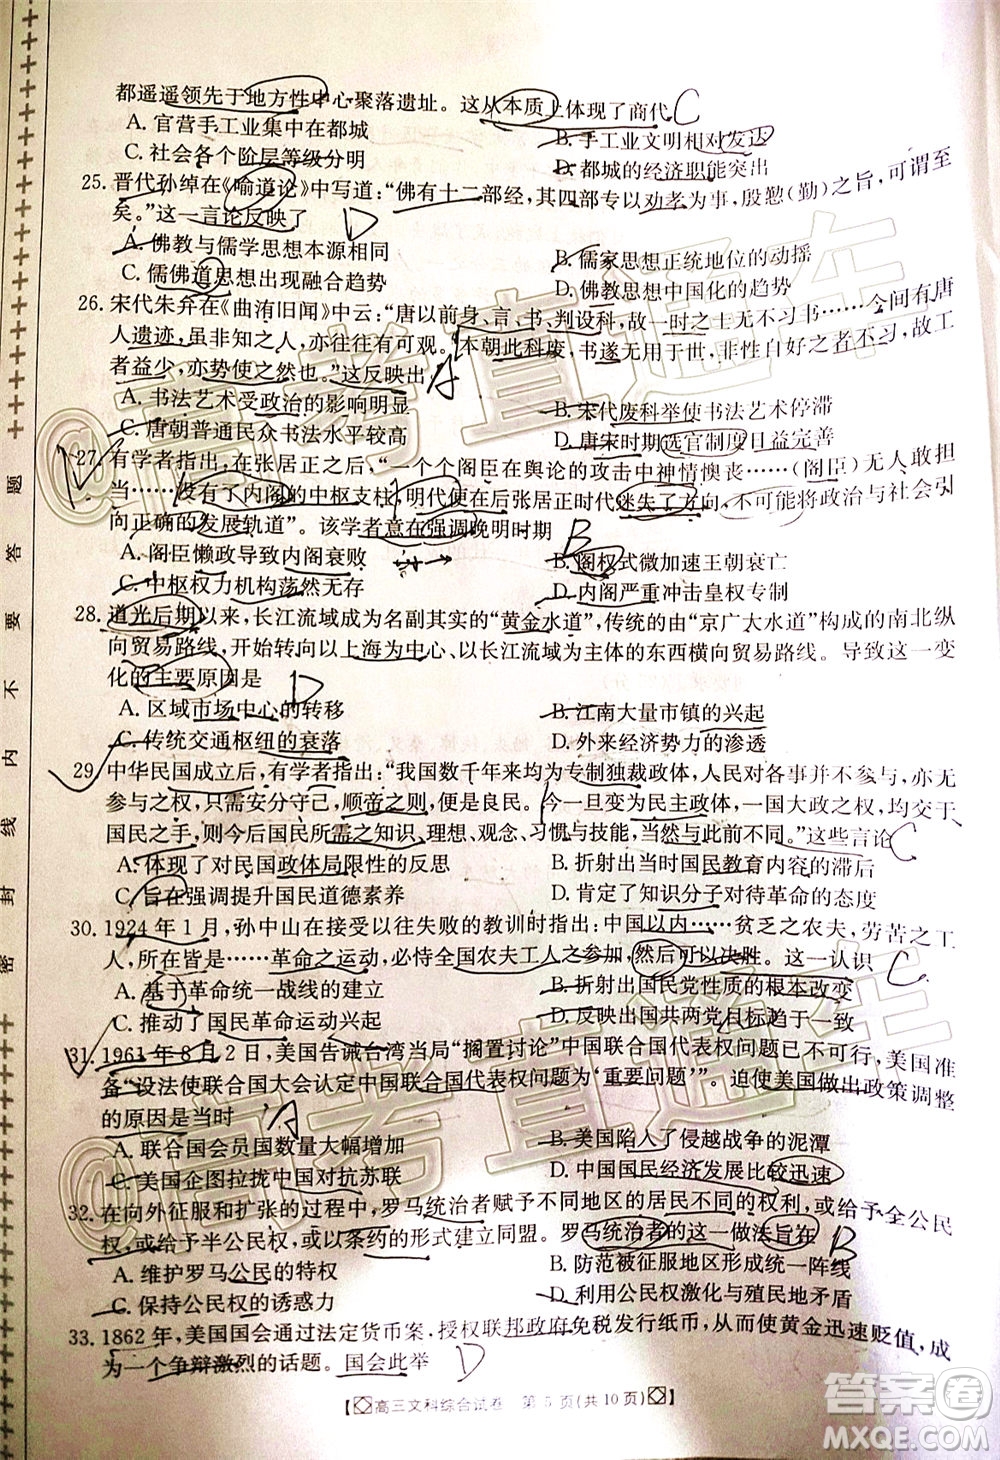 都遥遥领先于地方性中心聚落遗址。这从本质上体现了商代 C
A. 官营手工业集中在都城 B. 手工业文明相对发达
C. 社会各个阶层等级分明 D. 都城的经济职能突出
25. 晋代孙绰在《喻道论》中写道:“佛有十二部经,其四部专以劝孝为事,殷懃(勤)之旨,可谓至
矣。”这一言论反映了 D
A. 佛教与儒学思想本源相同 B. 儒家思想正统地位的动摇
C. 儒佛道思想出现融合趋势 D. 佛教思想中国化的趋势
26. 宋代朱弁在《曲洧旧闻》中云:“唐以前身、言、书、判设科,故一时之士无不习书……今间有唐
人遗迹,虽非知名之人,亦往往有可观。本朝此科废,书遂无用于世,非性自好之者不习,故工
者益少,亦势使之然也。”这反映出 A
A. 书法艺术受政治的影响明显 B. 宋代废科举使书法艺术停滞
C. 唐朝普通民众书法水平较高 D. 唐宋时期选官制度日益完善
27. 有学者指出,在张居正之后,“一个个阁臣在舆论的攻击中神情懊丧……(阁臣)无人敢担
当……没有了内阁的中枢支柱,明代便在后张居正时代迷失了方向,不可能将政治与社会引
向正确的发展轨道”。该学者意在强调晚明时期 B
A. 阁臣懒政导致内阁衰败 B. 阁权式微加速王朝衰亡
C. 中枢权力机构荡然无存 D. 内阁严重冲击皇权专制
28. 道光后期以来,长江流域成为名副其实的“黄金水道”,传统的由“京广大水道”构成的南北纵
向贸易路线,开始转向以上海为中心、以长江流域为主体的东西横向贸易路线。导致这一变
化的主要原因是 D
A. 区域市场中心的转移 B. 江南大量市镇的兴起
C. 传统交通枢纽的衰落 D. 外来经济势力的渗透
29. 中华民国成立后,有学者指出:“我国数千年来均为专制独裁政体,人民对各事并不与议,亦无
参与之权,只需安分守己,顺帝之则,即为良民。今一旦变为民主政体,一国大政之权,均交于
国民之手,则今后全国国民所需之知识、理想、观念、习惯与技能,当然与前不同。”这些言论 C
A. 体现了对民国政体局限性的反思 B. 折射出国民教育内容的滞后
C. 旨在强调提升国民道德素养 D. 肯定了知识分子对待革命的态度
30. 1924 年 1 月,孙中山在接受以往失败的教训时指出:中国以内……贫乏之农夫,劳苦之工
人,所在皆是……革命之运动,必恃全国农夫工人之参加,然后可以决胜。这一认识 C
A. 基于革命统一战线的建立 B. 折射出国民党性质的根本改变
C. 推动了国民革命运动的兴起 D. 反映出国共两党目标趋于一致
31. 1961 年 8 月 2 日,美国告诫台湾当局“搁置讨论”中国联合国代表权问题已不可行,美国准
备“设法使联合国大会认定中国联合国代表权问题为‘重要问题’”。迫使美国做出政策调整
的原因是当时 A
A. 联合国会员国数量大幅增加 B. 美国陷入了侵越战争的泥潭
C. 美国企图拉拢中国对抗苏联 D. 中国国民经济发展比较迅速
32. 在向外征服和扩张的过程中,罗马统治者赋予不同地区的居民不同的权利,或给予全公民
权,或给予半公民权,或以条约的形式建立同盟。罗马统治者的这一做法旨在 B
A. 维护罗马公民的特权 B. 防范被征服地区形成统一阵线
C. 保持公民权的诱惑力 D. 利用公民权激化与殖民地矛盾
33. 1862 年,美国国会通过法定货币案,授权联邦政府免税发行纸币,从而使黄金迅速贬值,成
为一个争辩激烈的话题。国会此举 D
【高三文科综合试卷 第 5 页(共 10 页)】
密 封 线 内 不 要 答 题
@高考直通车
@高考直通车
答案圈
MXQE.COM